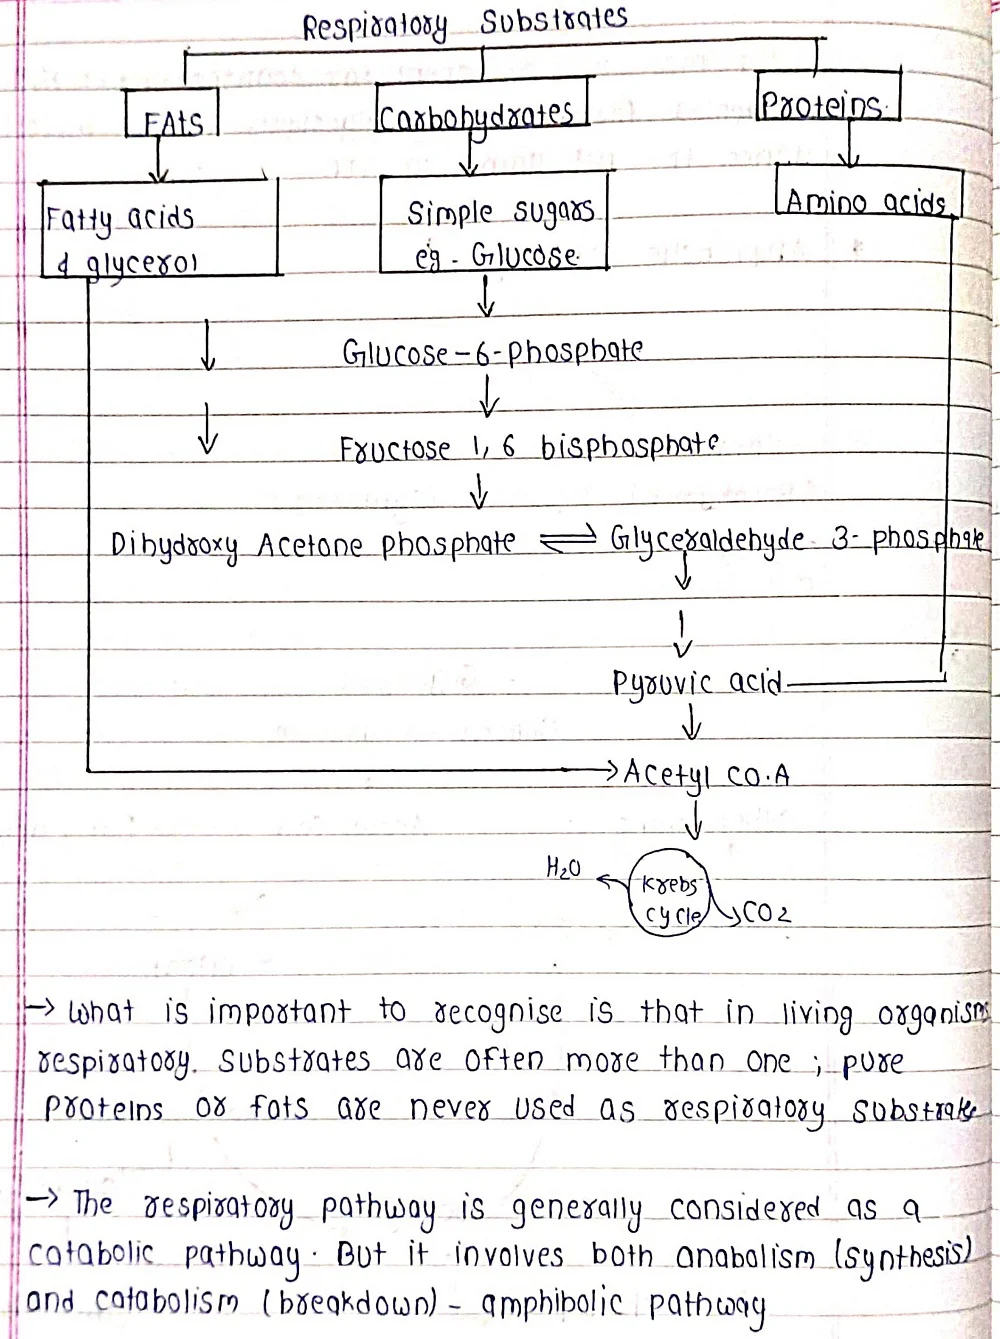 Respiratory Substrates
FAts
Carbohydrates
Proteins.
Fatty acids
& glycerol
Simple sugars
eg. Glucose.
Amino acids
Glucose-6-phosphate
Fructose 1, 6 bisphosphate
Dihydroxy Acetone phosphate ⇌ Glyceraldehyde 3- phosphate
Pyruvic acid
Acetyl CO.A
H₂O
Krebs
cycle
CO2
→ What is important to recognise is that in living organism
respiratory. substrates are often more than one ; pure
proteins or fats are never used as respiratory substrate
→ The respiratory pathway is generally considered as a
catabolic pathway. But it involves both anabolism (synthesis)
and catabolism (breakdown) - amphibolic pathway